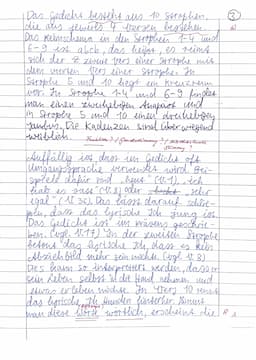 Das Gedicht besteht aus 10 Strophen,
die aus jeweils 4 Versen bestehen.
Das Reimschema in den Strophen 1-4 und
6-9 ist abcb, das heißt, es reimt
sich der 2. Vers einer Strophe mit
dem vierten Vers einer Strophe. In
Strophe 5 und 10 liegt ein Kreuzreim
vor. In Strophe 1-4 und 6-9 findet
man einen
in Strophe 5 und 10 einen dreihebigen
Jambus. Die Kadenzen sind überwiegend
weiblich.
Auffällig ist, dass im Gedicht oft
Umgangssprache verwendet wird. Bei-
spiele dafür sind "heut" (V.1), "ich
hab es satt" (V. 8) oder "sehr
egal" (V. 30). Das lässt darauf schlie-
ßen, dass das lyrische Ich jung ist.
Das Gedicht ist im Präsens geschrie-
ben (vgl. V.17). In der zweiten Strophe
betont das lyrische Ich, dass es kein
mehr sein möchte (vgl. V. 8)
Dies kann so interpretiert werden, dass er
sein Leben selbst in die Hand nehmen und
etwas erleben möchte. In Vers 10 nennt
das lyrische Ich
man diese wörtlich, erscheint die